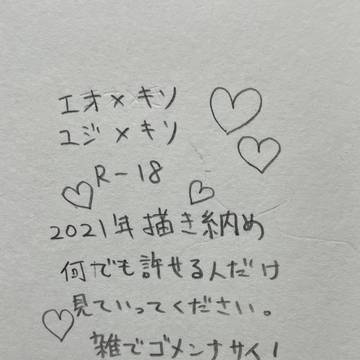 エオ×キソ
ユジ×キソ
R-18
2021年描き納め
何でも許せる人だけ
見ていってください。
雑でゴメンナサイ!